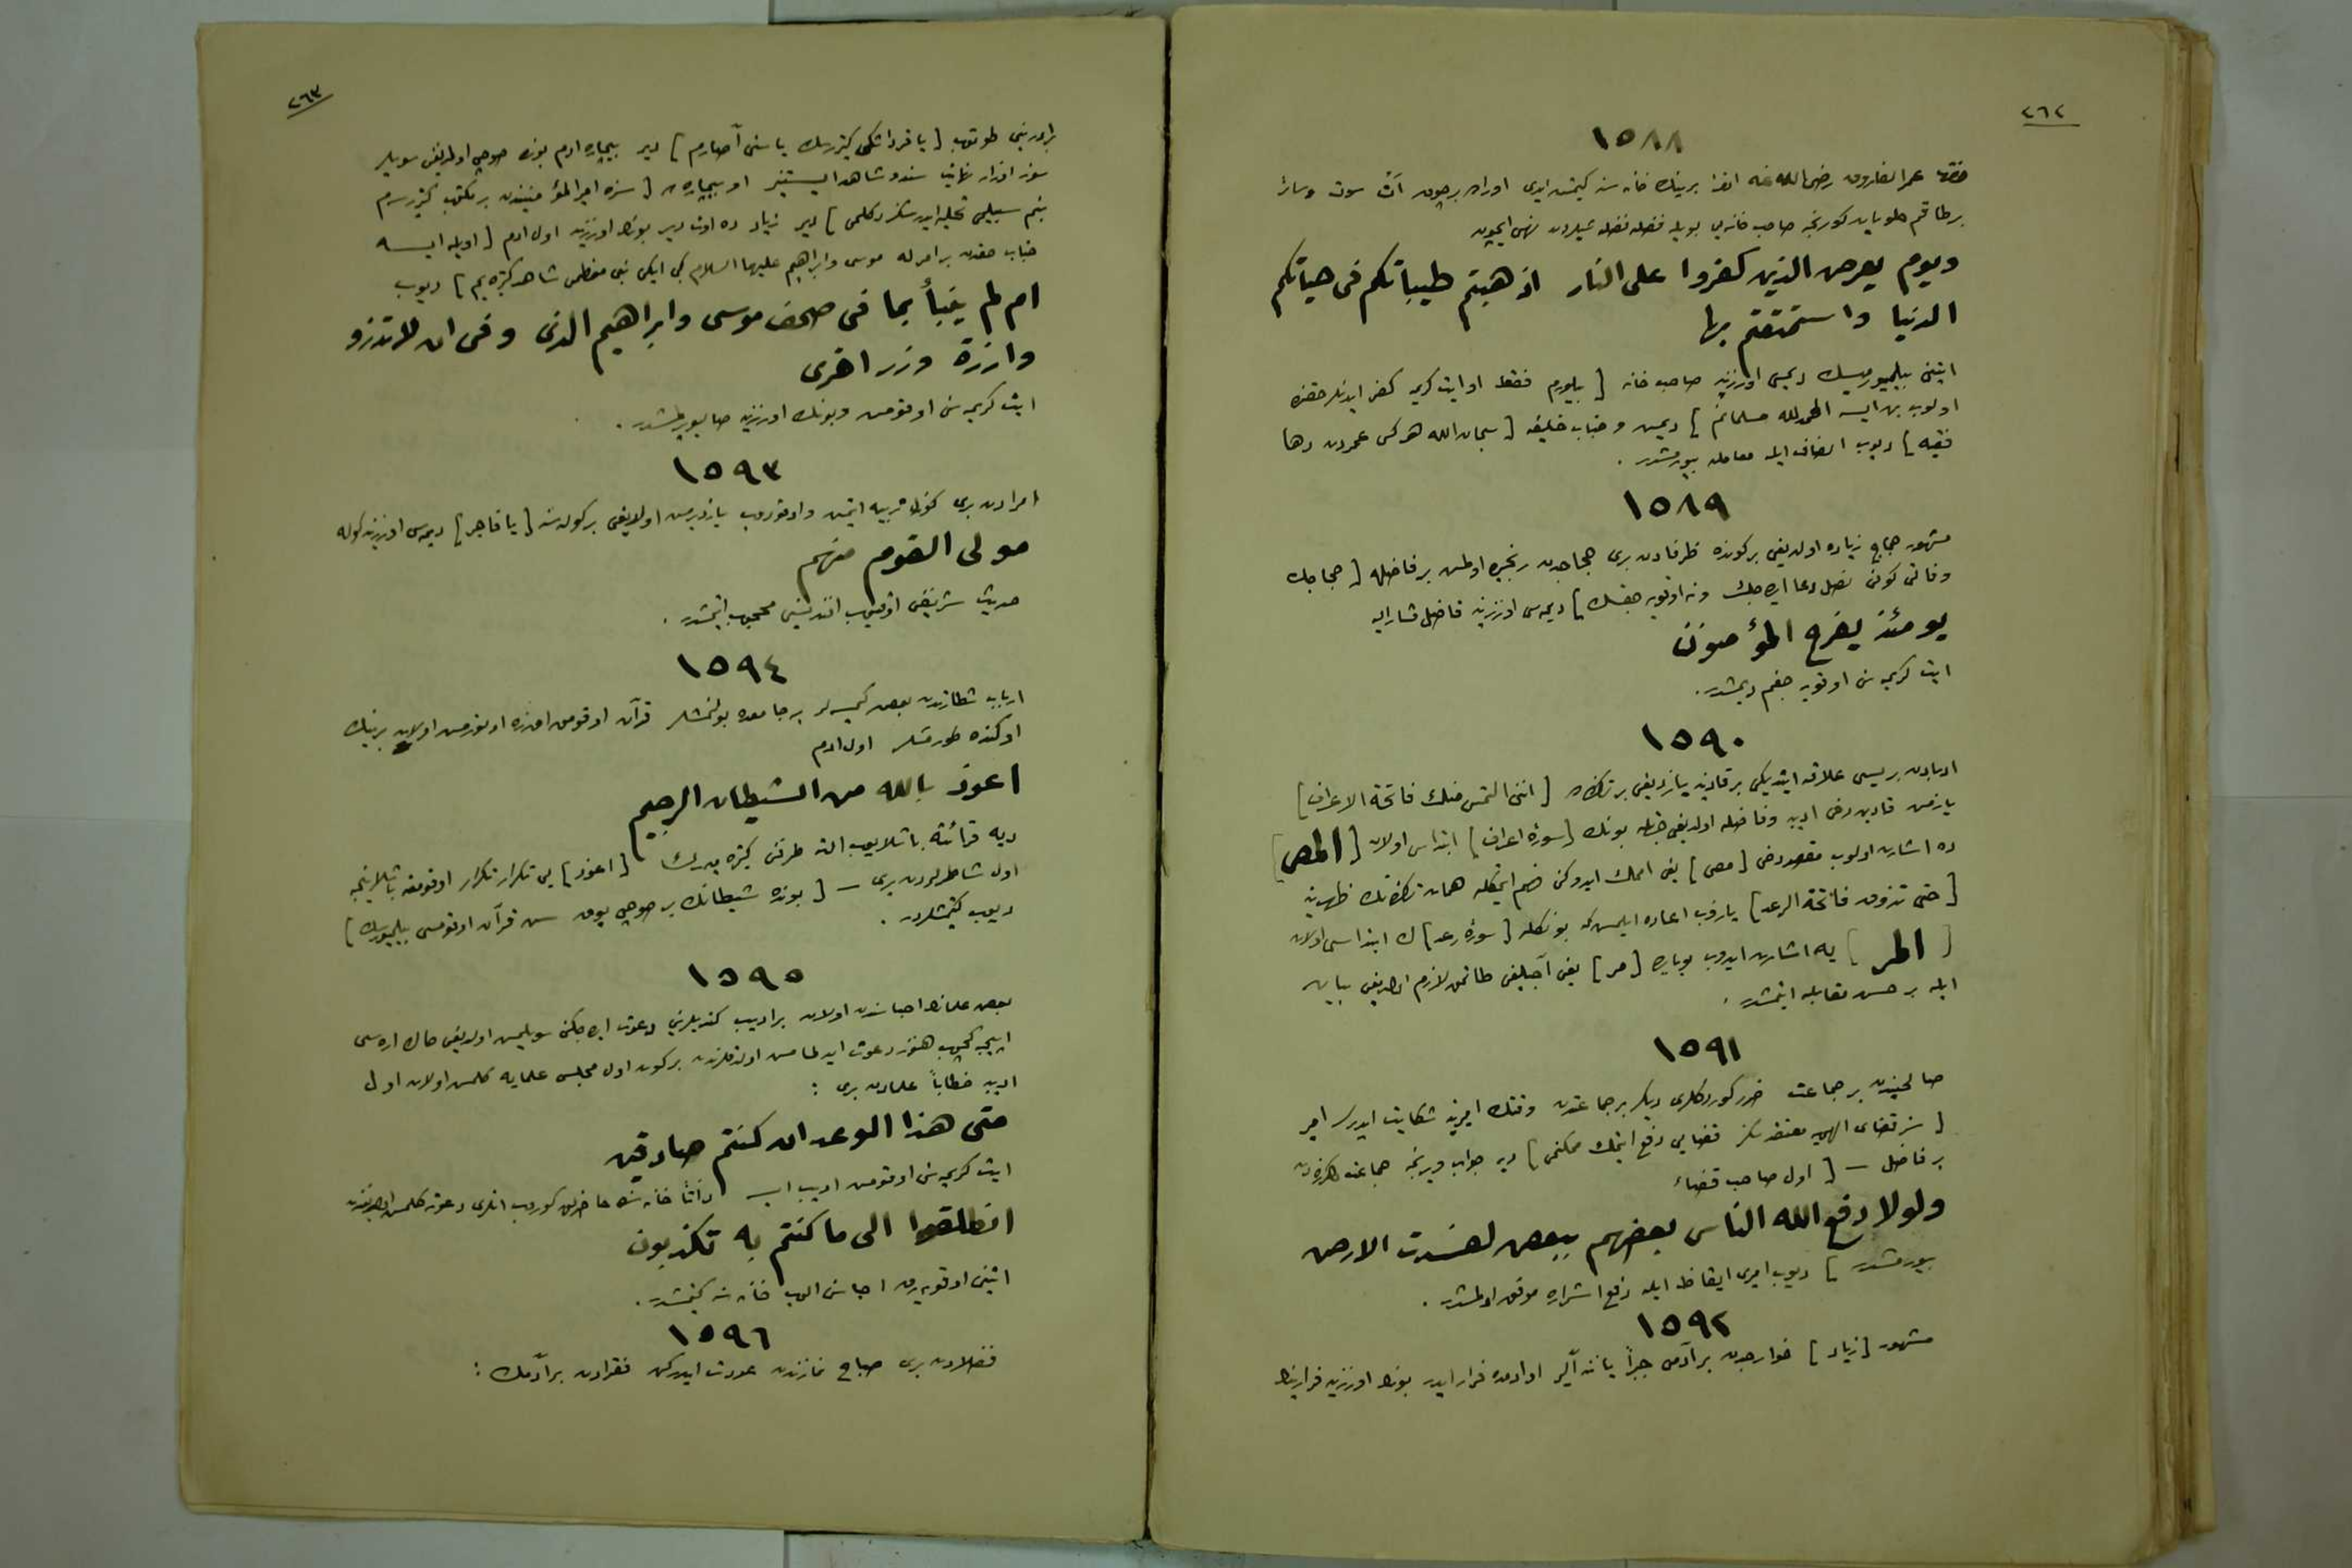 ٢٦٢
١٥٨٨
حضرت عمر الفاروق رضی الله عنه افندمز برینك خانه سنه کیتمش ایدی اوراده برچوق آت سوت وسائر
بر طاقم حلویات کورنجه صاحب خانه یی بویله فضله فضله شیلردن نهی ایچون
ویوم یعرض الذین کفروا علی النار اذهبتم طیباتکم فی حیاتکم
الدنیا واستمتعتم بها
ایتنی بیلمیورمیسك دیمسی اوزرینه صاحب خانه [ بیلورم فقط او ایت کریمه کفر ایدنلر حقنده
اولوب بن ایسه الحمد لله مسلمانم ] دیمش و جناب خلیفه [ سبحان الله هرکس عمردن دها
فقیه ] دیوب انصاف ایله معامله بیورمشدر .
١٥٨٩
مشهور حجاج زیاده اولدیغی برکونده ظرفادن بری حجاجدن رنجیده اولمش بر فاضله [ حجاجك
وفاتی کونی نصل دعا ایده جك ونه اوقویه جقسك ] دیمه سی اوزرینه فاضل مشارالیه
یومئذ یفرح المؤمنون
ایت کریمه سنی اوقویه جغم دیمشدر .
١٥٩٠
ادبادن بریسی علاقه ایتدیکی بر قادینه یازدیغی بر تذکره ده [ اننی التمس منك فاتحة الاعراف ]
یازمش قادین دخی ادیبه وفاضله اولدیغی جهتله بونك [ سورهٔ اعراف ] ابتداسی اولان [ المص ]
ده اشارت اولوب مقصد دخی [ مص ] یعنی املك ایدوکنی فهم ایتمکله همان تذکره نك ظهرینه
[ حتی تذوق فاتحة الرعد ] یازوب اعاده ایلمش که بونکله [ سورهٔ رعد ] ك ابتداسی اولان
[ المر ] یه اشارت ایدوب بویله [ مر ] یعنی آجیلغی طاتمق لازم اولدیغنی بیان
ایله بر حسن مقابله ایتمشدر .
١٥٩١
صالحیندن بر جماعت ضرر کوردکلری دیکر بر جماعتدن وقتك امیرینه شکایت ایدرلر امیر
[ سز قضای الهی یه معتقدسکز قضایی دفع ایتمك ممکنمی ] دیه جواب ویرنجه جماعت مذکوره دن
بر فاضل — [ اول صاحب قضاء
ولولا دفع الله الناس بعضهم ببعض لفسدت الارض
بیورمشدر ] دیوب امیری ایقاظ ایله دفع اشراره موفق اولمشدر .
١٥٩٢
مشهور [ زیاد ] خوارجدن بر آدمی جبراً یاننه آلیر او ادمده فرار ایدر بونك اوزرینه فرارینك
٢٦٣
برادرینی طوتوب [ یا قرداشکی کتیررسك یا سنی آصارم ] دیر بیچاره ادم بونده صوچی اولمدیغنی سویلر
سوز اوزار نهایت سند و شاهد ایستنیر او بیچاره ده [ سزه امیر المؤمنیندن بر مکتوب کتیررسم
بنم سبیلمی تخلیه ایدرسکز دکلمی ] دیر زیاد ده اوت دیر بونك اوزرینه اول ادم [ اویله ایسه
جناب حقدن بر امر له موسی وابراهیم علیهما السلام کبی ایکی نبی معظمی شاهد کتیره یم ] دیوب
ام لم ینبأ بما فی صحف موسی وابراهیم الذی وفی ان لا تذرو
وازرة وزر اخری
ایت کریمه سنی اوقومش وبونك اوزرینه صالیویرلمشدر .
١٥٩٣
امرادن بری کوزل تربیه ایتمش واوقودوب یازدیرمش اولدیغی بر کوله سنه [ یا فاجر ] دیمه سی اوزرینه کوله
مولی القوم منهم
حدیث شریفنی اوقیوب افندیسنی محجوب ایتمشدر .
١٥٩٤
ارباب شطارتدن بعض کیمسه لر بر جامعده بولنمشلر قرآن اوقومق اوزره اوتورمش اولان برینك
اوکنده طورمشلر اول ادم
اعوذ بالله من الشیطان الرجیم
دیه قرائته باشلایوب الت طرفنی کتیره میه رك [ اعوذ ] یی تکرار تکرار اوقومغه باشلاینجه
اول شاطرلردن بری — [ بونده شیطانك بر صوچی یوق سن قرآن اوقومسنی بیلمیورسك ]
دیوب کیتمشلردر .
١٥٩٥
بعض علمانك احباسندن اولان بر ادیب کندیلرینی دعوت ایده جکنی سویلمش اولدیغی حالده اره سی
اپیجه کچوب هنوز دعوت ایدلمامش اولدقلرندن برکون اول مجلس علمایه کلمش اولان اول
ادیبه خطاباً علمادن بری :
متی هذا الوعد ان کنتم صادقین
ایت کریمه سنی اوقومش ادیب ایسه ذاتاً خانه سنده حاضرلق کوروب انلری دعوته کلمش اولدیغندن
انطلقوا الی ما کنتم به تکذبون
ایتنی اوقویه رق احباسنی الوب خانه سنه کیتمشدر .
١٥٩٦
فضلادن بری صباح نمازندن عودت ایدرکن فقرادن بر آدمك :